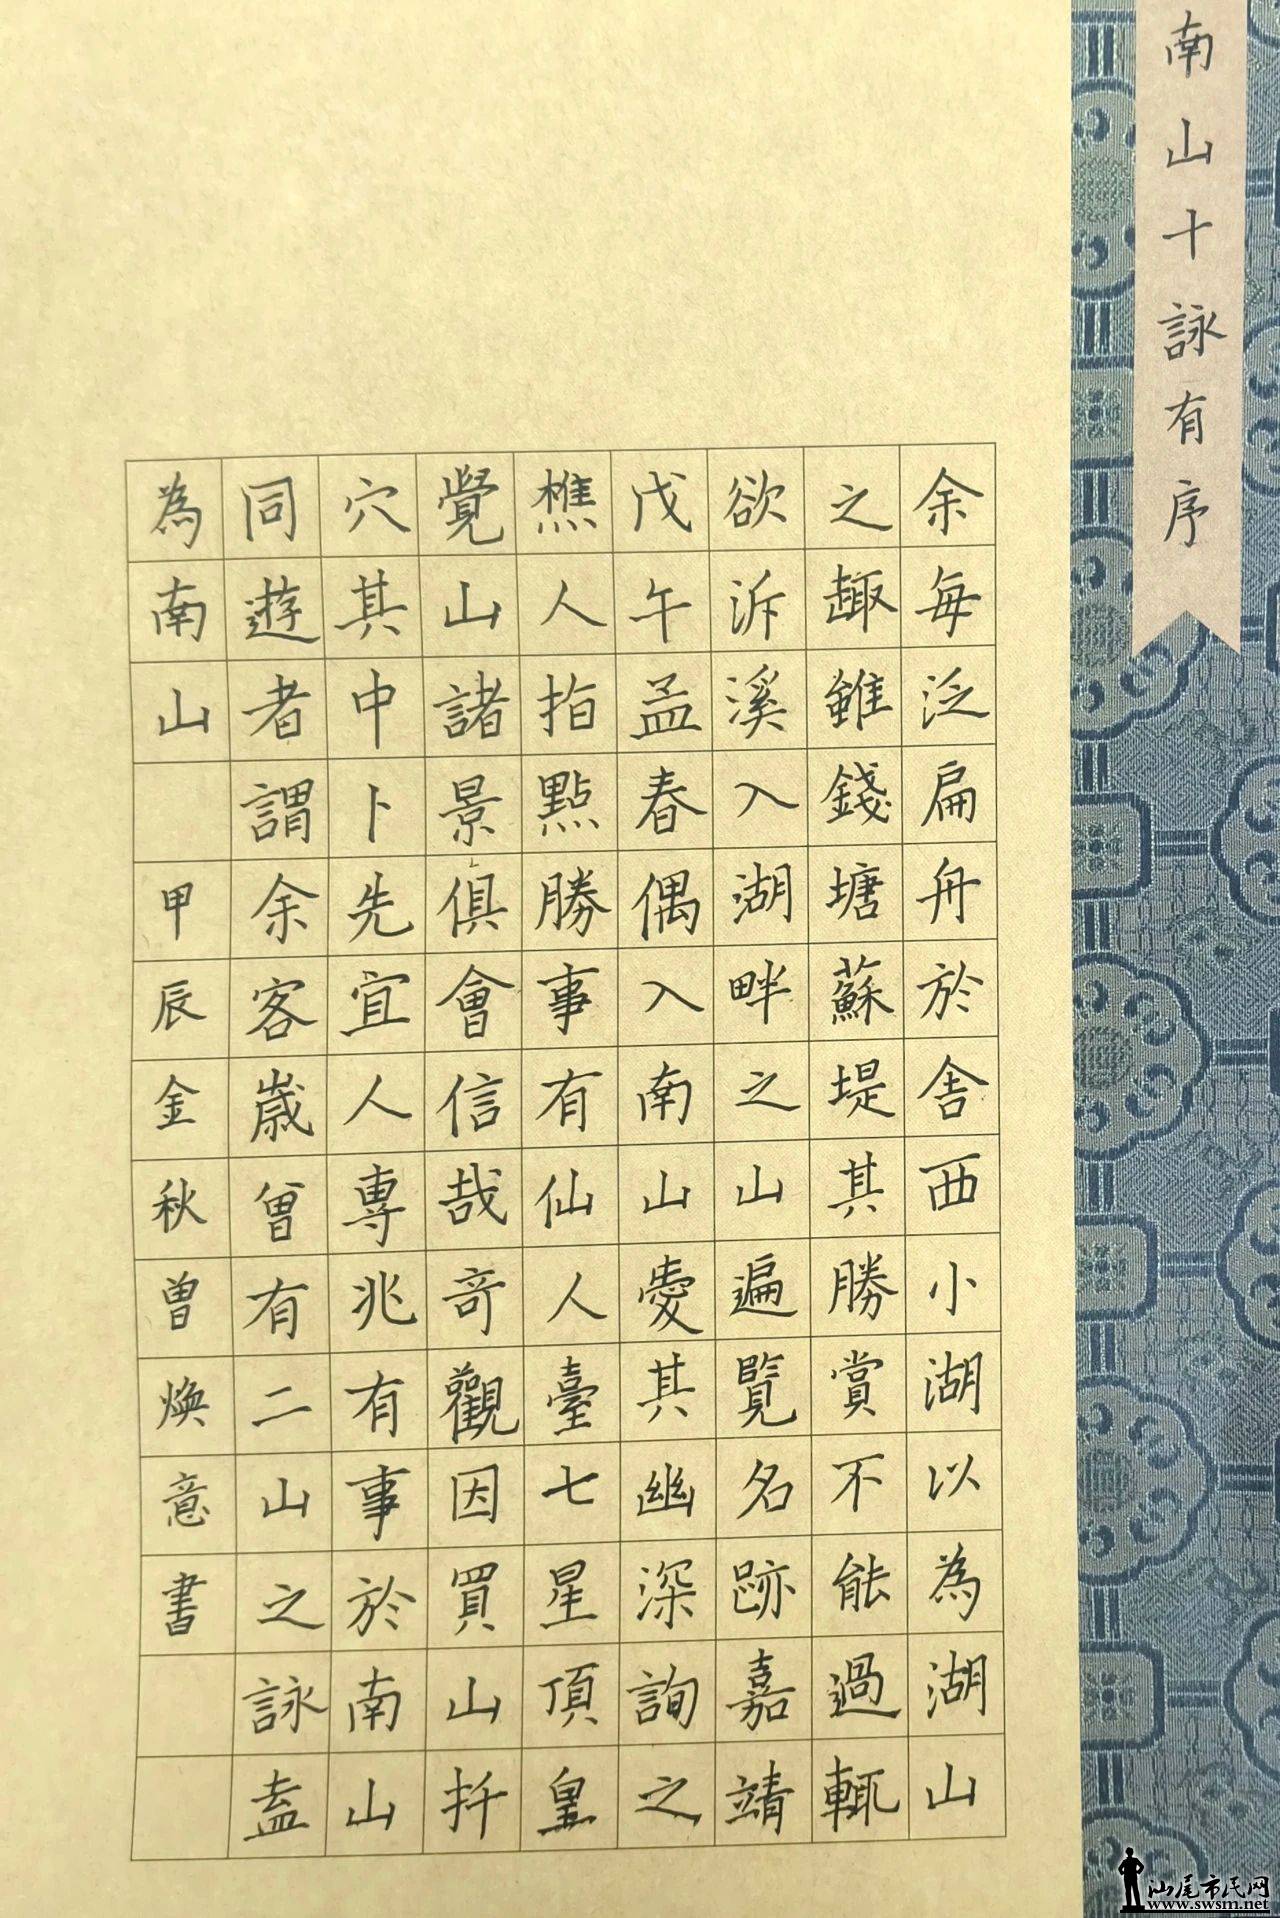 南山十詠有序
余每泛扁舟於舍西小湖以為湖山
之趣雖錢塘蘇堤其勝賞不能過輒
欲泝溪入湖畔之山遍覽名跡嘉靖
戊午孟春偶入南山愛其幽深詢之
樵人指點勝事有仙人臺七星頂皇
覺山諸景俱會信哉奇觀因買山扦
穴其中卜先宜人專兆有事於南山
同遊者謂余客歲曾有二山之詠盍
為南山 甲辰金秋曾煥意書
汕尾市民网
www.swsm.net